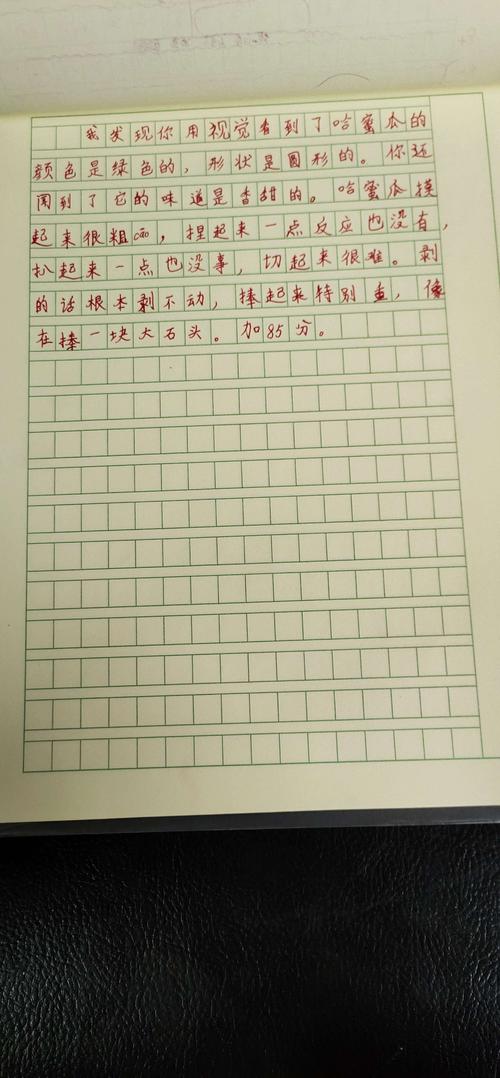 我发现你用视觉看到了哈蜜瓜的
颜色是绿色的，形状是圆形的。你还
闻到了它的味道是香甜的。哈蜜瓜摸
起来很粗，捏起来一点反应也没有，
扒起来一点也没事，切起来很难。剥
的话根本剥不动，捧起来特别重，像
在捧一块大石头。加85分。